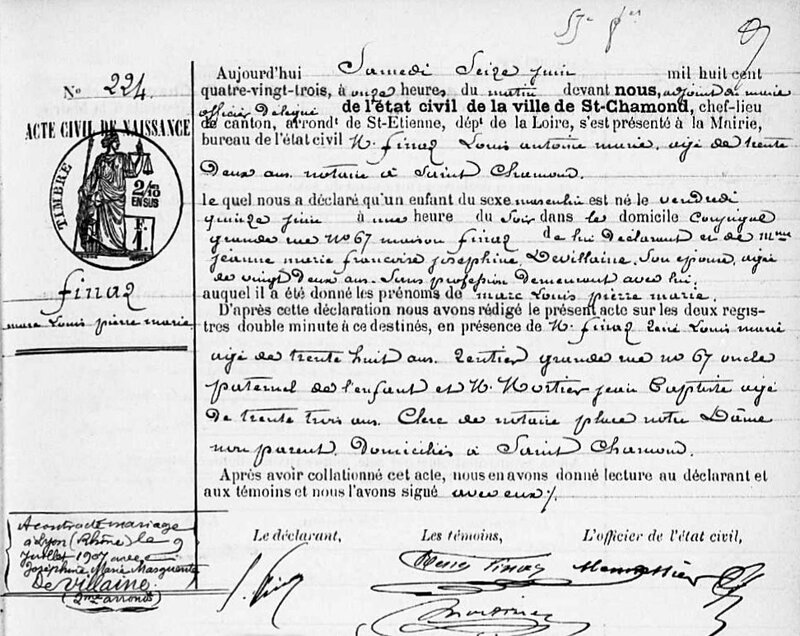 Nº 224
ACTE CIVIL DE NAISSANCE
TIMBRE
2/10
EN SUS
F.
1.
finaz
marc Louis pierre marie
Acontracté mariage
à Lyon (Rhône) le 9
Juillet 1907 avec
Joséphine Marie Marguerite
De Villaine
(2me arrondt)
Aujourd'hui Samedi Seize juin mil huit cent
quatre-vingt-trois, à onze heures du matin devant nous, adjoint au maire
officier délégué de l'état civil de la ville de St-Chamond, chef-lieu
de canton, arrondt de St-Etienne, dépt de la Loire, s'est présenté à la Mairie,
bureau de l'état civil M. finaz Louis antoine marie, agé de trente
Deux ans. notaire à Saint Chamond.
le quel nous a déclaré qu'un enfant du sexe masculin est né le vendredi
quinze juin à une heure du Soir dans le domicile Conjugal
grande rue nº 67 maison finaz de lui Déclarant et de mme
jeanne marie françoise joséphine Devillaine, Son épouse, agée
de vingt Deux ans. Sans profession Demeurant avec lui.
auquel il a été donné les prénoms de marc Louis pierre marie.
D'après cette déclaration nous avons rédigé le présent acte sur les deux regis-
tres double minute à ce destinés, en présence de M. finaz René Louis marie
agé de trente huit ans. Rentier grande rue nº 67 oncle
paternel de l'enfant et M. Mortier jean Baptiste agé
de trente trois ans. Clerc de notaire place notre Dame
non parent. Domiciliés à Saint Chamond.
Après avoir collationné cet acte, nous en avons donné lecture au déclarant et
aux témoins et nous l'avons signé avec eux ./.
Le déclarant, Les témoins, L'officier de l'état civil,
L. Finaz